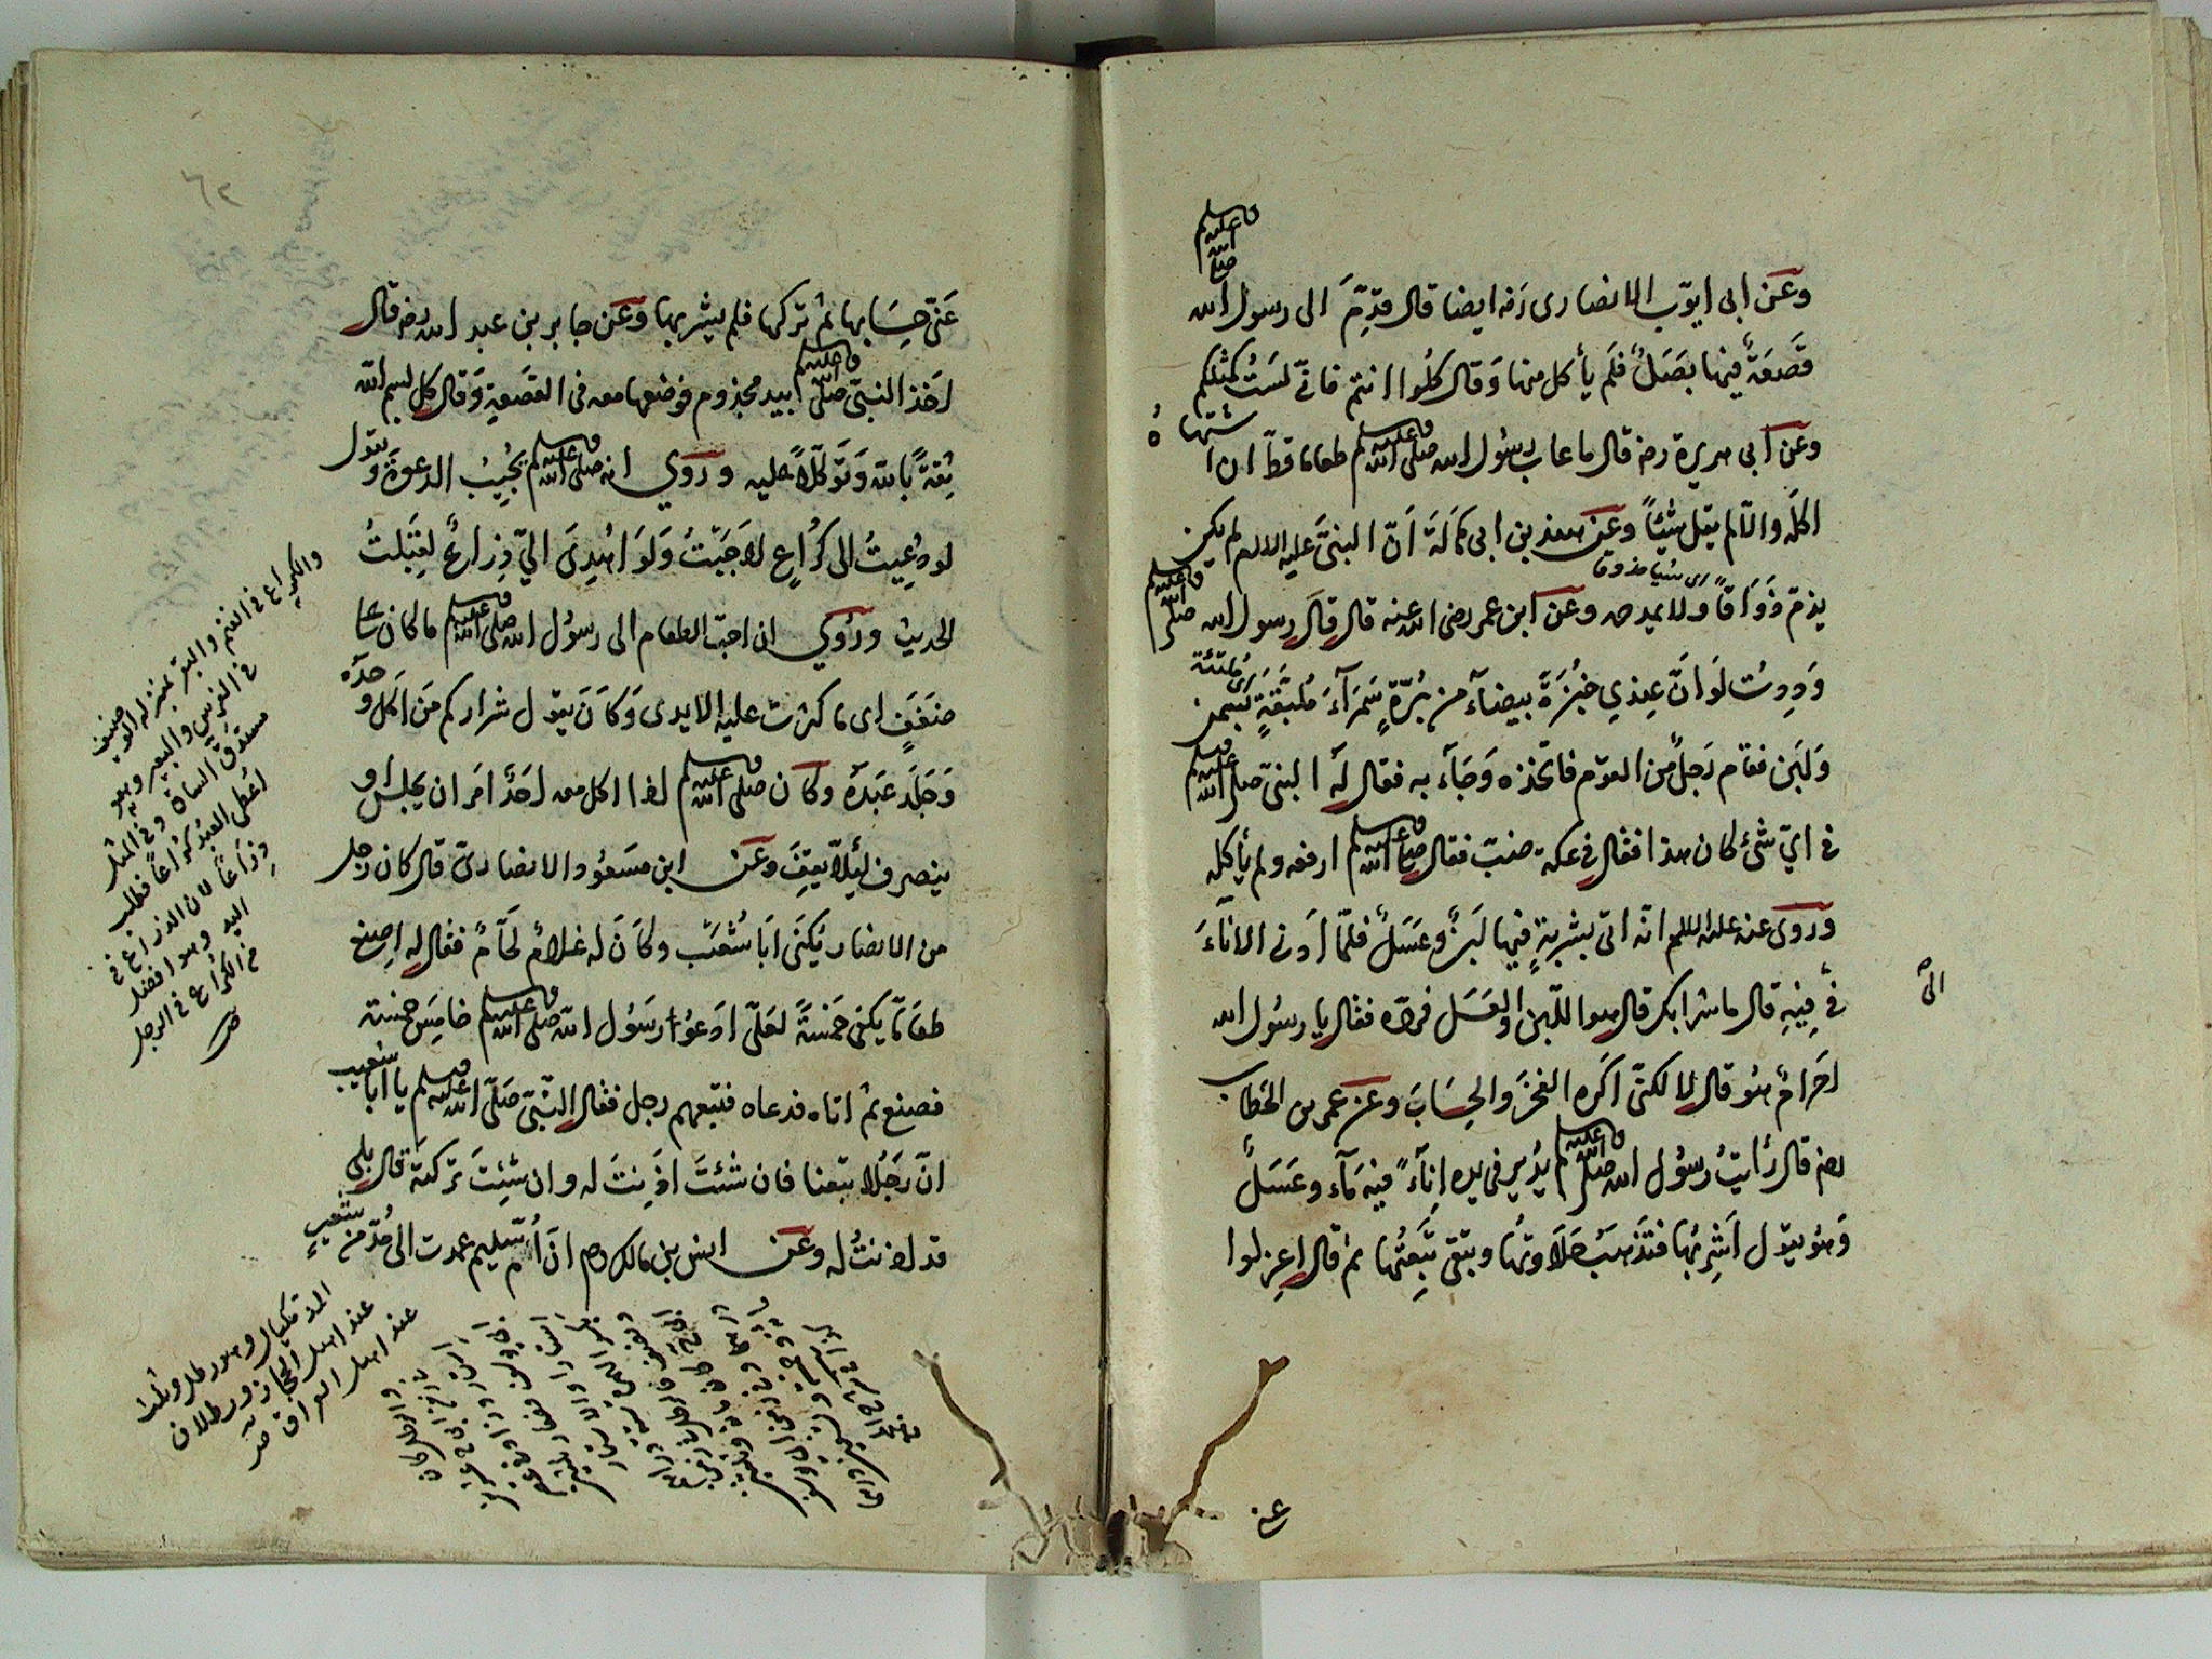 وعن ابى ايوّب الانصارى رضه ايضا قال قدِّمَ الى رسول الله صلى الله عليه وسلم
قَصعَةٌ فيها بَصَلٌ فلَم يأكل منها وَقال كلُوا انتم فانّى لسَتُ كمثلكم
وعن ابى هريرة رضه قال ما عاب رسُول الله صلى الله عليه وسلم طعاما قطّ ان اشتهاهُ
اكلَه والّا لم يقل شيئاً وعَن هند بن ابى هَالَة اَنّ النبىَّ عليه السلام لم يكن
يذمّ ذوَاقاً ولا يمدحه وعن ابن عمر رضى الله عنه قال قالَ رسول الله صلى الله عليه وسلم
اى شيئا مذوقا
وَدِدتُ لَو اَنَّ عِندِي خبُزَةً بيضآءَ من بُرّةٍ سَمرَآءَ مُلَبَّقةٍ بسَمن
وَلَبَن فقام رَجلٌ من القوم فاتخذه وَجَآء به فقال لَهُ النبىّ صلى الله عليه وسلم
فى اىّ شئ كان هذا فقال فى عكة ضبّ فقال صلى الله عليه وسلم ارفعه ولم يأكله
وروى عنه عليه السلام انّه اتى بشربةٍ فيها لبَنٌ وعَسَلٌ فلمّا اَدنى الاناءَ
الى
فى فِيهِ قال ما شرابكم قال هو اللّبن والعَسَل فردّه فقال يا رسُول الله
احَرامٌ هُو قال لا لكنّى اكَره الفخَر والحِسَابَ وعن عمر بن الخطاب
رضه قال رأيتُ رسُول الله صلى الله عليه وسلم يُدير فى يده اِناءً فيه مَآء وعَسَلٌ
وَهُو يقول اَشْرِبُها فتذهَبُ حَلَاوتُها وتبقى تَبِعَتُها ثم قال اعزلوا
عنى
٦٢
عَنّى حِسَابها ثم تركها فلم يشربها وعَن جابر بن عبد الله رضه قال
اخَذ النبىّ صلى الله عليه وسلم بيد مجذوم فوضعها معه فى القصَعةِ وَقال كل بسم الله
ثِقةً بالله وَتَوكّلاً عليه وروي انه صلى الله عليه وسلم يُجيبُ الدعوة ويقول
لو دُعِيتُ الى كُرَاعٍ لاَجَبْتُ وَلَو اُهْدِىَ الىّ ذِرَاعٌ لقَبِلتُ
الحديث ورُوي ان احبّ الطعام الى رسُول الله صلى الله عليه وسلم ما كان على
ضَفَفٍ اى ما كثرت عليه الايدى وَكانَ يقول شراركم مَن اَكَل وحدَه
وَجَلَد عَبدَهُ وكان صلى الله عليه وسلم اذا اكل معه احَدٌ امَر ان يجلس او
ينصرف لِئلاّ يقِفَ وعَن ابن مسَعُود الانصارىّ قال كان رجل
من الانصار يُكنَى اَبَا شُعَيب وكَانَ له غلامٌ لَحّامٌ فقال له اصنع
طعَامًا يكفى خمَسةً لعَلّى ادعُو رَسُول الله صلى الله عليه وسلم خامِسَ خمسة
فصنع ثم اتاه فدعاه فتبعهم رجل فقال النّبىّ صَلّى الله عليه وسلم يا ابا شعيب
انّ رَجُلا تبعنا فان شئتَ اذِنتَ له وان شئِتَ تركتَهُ قال بلى
قد اذنتُ له وعَن انس بن مالك رضه انّ اُمّ سُليم عمدت الى مُدّ من شعيرٍ
والكراع فى الغنم والبقر بمنزلة الوظيف
فى الفرس والبعير وهو
مستدق الساق وفى المثل
اعُطى العَبد كرُاعاً فطلب
ذِراعاً لان الذراع فى
اليد وهو افضل
من الكراع فى الرجل
المد مكيال وهو رطل وثلث
عند اهل الحجاز ورطلان
عند اهل العراق